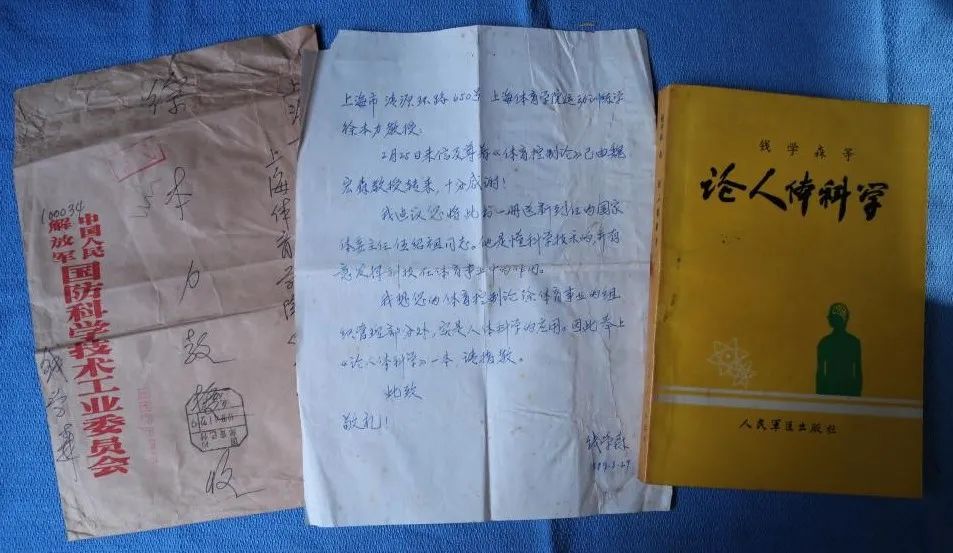 徐本力教授收
上海体育学院
100034
中国人民
解放军
国防科学技术工业委员会
钱学森
上海市清源环路650号 上海体育学院运动训练学
徐本力教授:
2月25日来信及尊著《体育控制论》已由魏
宏森教授转来,十分感谢!
我建议您将此书一册送新到任的国家
体委主任伍绍祖同志。他是懂科学技术的,并有
意发挥科技在体育事业中的作用。
我想您的体育控制论除体育事业的组
织管理部分外,实是人体科学的应用。因此奉上
《论人体科学》一本,请指教。
此致
敬礼!
钱学森
1989.3.27
钱学森等
论人体科学
人民军医出版社